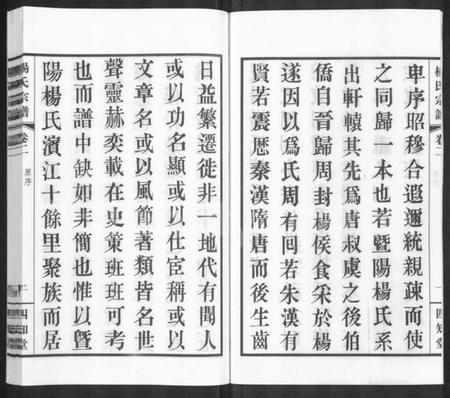 楊氏宗譜
卷二
一
四知堂
卑序昭穆合遐邇統親疎而使
之同歸一本也若暨陽楊氏系
出軒轅其先爲唐叔虞之後伯
僑自晉歸周封楊侯食采於楊
遂因以爲氏周有回若朱漢有
賢若震歷秦漢隋唐而後生齒
日益繁遷徙非一地代有聞人
或以功名顯或以仕宦稱或以
文章名或以風節著類皆名世
聲靈赫奕載在史策班班可考
也而譜中缺如非簡也惟以暨
陽楊氏濱江十餘里聚族而居
楊氏宗譜
卷二
原序
二
四知堂